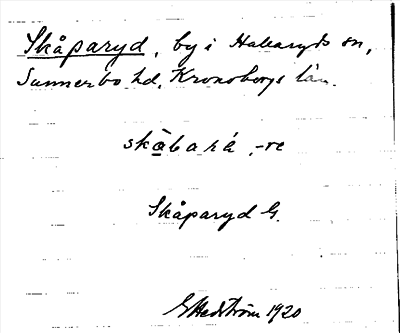 Skåparyd, by i Halaryds sn,
Sunnerbo hd, Kronobergs län.
skàbará, -re
Skåparyd G.
G Hedström 1920